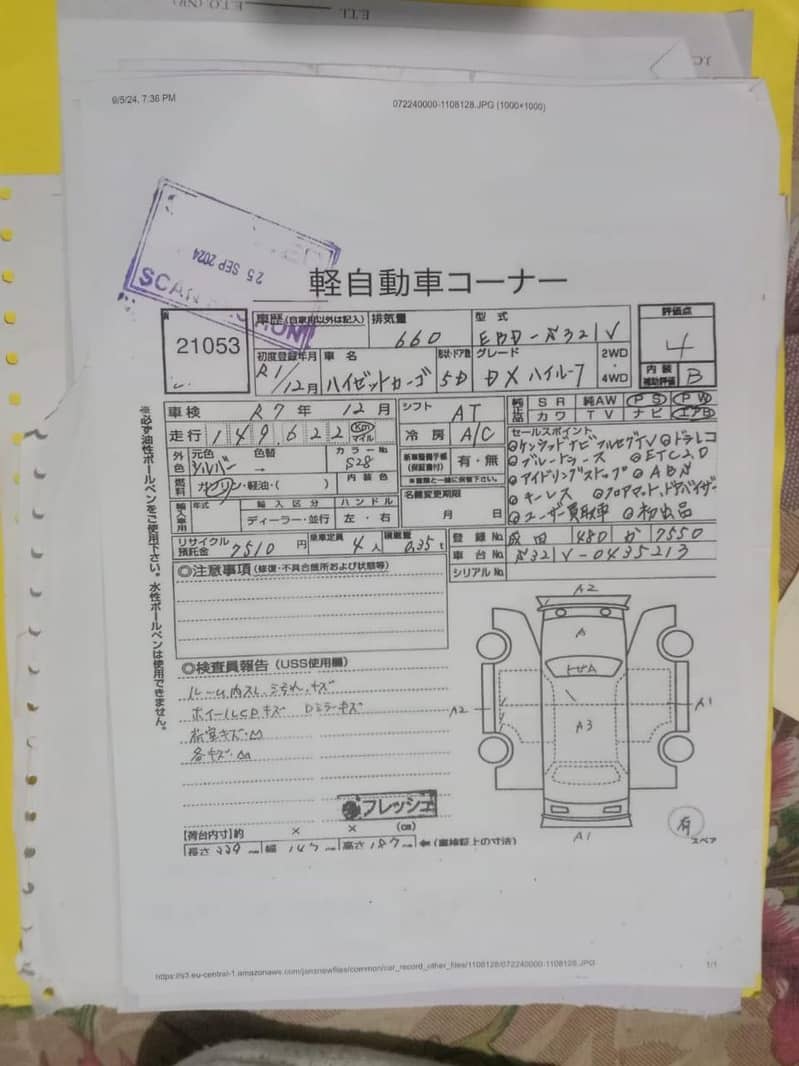 9/5/24, 7:36 PM
072240000-1108128.JPG (1000×1000)
25 SEP 2024
軽自動車コーナー
21053
車歴(自家用以外は記入)
排気量
660
型式
EBD-S321V
評価点
4
初度登録年月
R1/12月
車名
ハイゼットカーゴ
形状・ドア数
5D
グレード
DX ハイルーフ
2WD
4WD
内装
補助評価
B
車検
R7年 12月
シフト
AT
純正品
SR 純AW PS PW
カワ TV ナビ エアB
走行
149,622
Km
マイル
冷房
A/C
セールスポイント
外色
元色
シルバー
色替
→
カラーNo
S28
内装色
燃料
ガソリン・軽油・( )
新車整備手帳
(保証書付)
有・無
※書類と一緒に保管下さい。
ETC2.0
アイドリングストップ
ABS
キーレス
フロアマット,ドアバイザー
ユーザー買取車
初出品
輸入車用
年式
輸入区分
ディーラー・並行
ハンドル
左・右
名義変更期限
月 日
リサイクル
預託金
7510円
乗車定員
4人
積載量
0.35t
登録No.
成田 480 か 7550
車台No.
S321V-0435213
シリアルNo.
◎注意事項(修復・不具合箇所および状態等)
※必ず油性ボールペンをご使用下さい。水性ボールペンは使用できません。
◎検査員報告(USS使用欄)
ルーム内スレ、ヨゴレ、キズ
ホイールCPキズ Dミラーキズ
各キズ・凹
フレッシュ
A2
A
A3
A2
A1
A1
有
スペア
【荷台内寸】約 × × (㎝)
長さ
幅
高さ
⇐(車検証上の寸法)
https://s3.eu-central-1.amazonaws.com/jansnowfiles/common/car_record_other_files/1108128/072240000-1108128.JPG
1/1